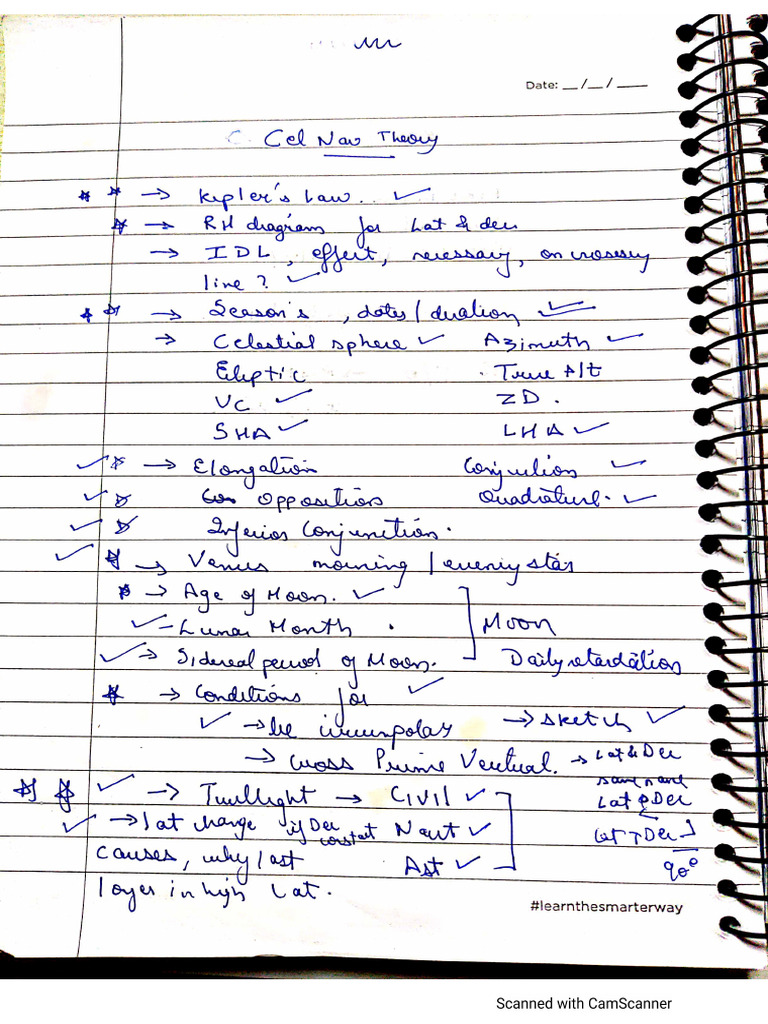 Date: __/__/____
Cel Nav Theory
** → Kepler's Law. ✓
* → RH diagrams for Lat & dec
→ IDL, effect, necessary, on crossing
line? ✓
** → Season's, dates/duation ✓
→ Celestial sphere ✓ Azimuth ✓
Ecliptic . True Alt
VC ✓ ZD.
SHA ✓ LHA ✓
✓ * → Elongation Conjuction ✓
✓ * Opposition Quadrature. ✓
✓ * Inferior Conjunction.
✓ * → Venus morning/evening star
* → Age of Moon. ✓
✓ - Lunar Month . ] Moon
✓ → Sidereal period of Moon. Daily retardation
* → Conditions for ✓
✓ → be circumpolar → sketch ✓
→ cross Prime Vertical. → Lat & Dec
same name
** ✓ → Twillight → Civil ✓ Lat & Dec
✓ → lat change if Dec constant Naut ✓ Lat + Dec
causes, why last Ast ✓ 90°
loger in high Lat.
#learnthesmarterway
Scanned with CamScanner